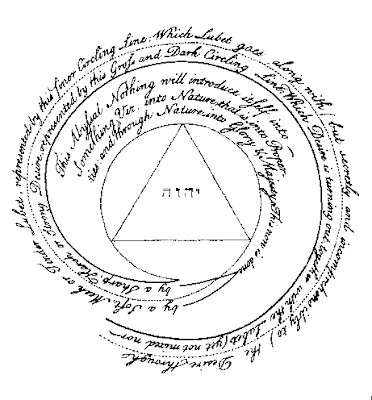 This Abysal Nothing will introduce itself into
Something Viz. into Nature, that is into Proper-
ties and through Nature into Glory & Majesty. This now is done
by a Soft Meek or Tender Lubet represented by this Inner Circling Line: Which Lubet goes along with (but secretly and incomprehensibly to) the Desire through
by a Sharp Harsh or Strong Desire represented by this Gross and Dark Circling Line: Which Desire is turning out together with the Lubet (yet not mixed nor
יהוה